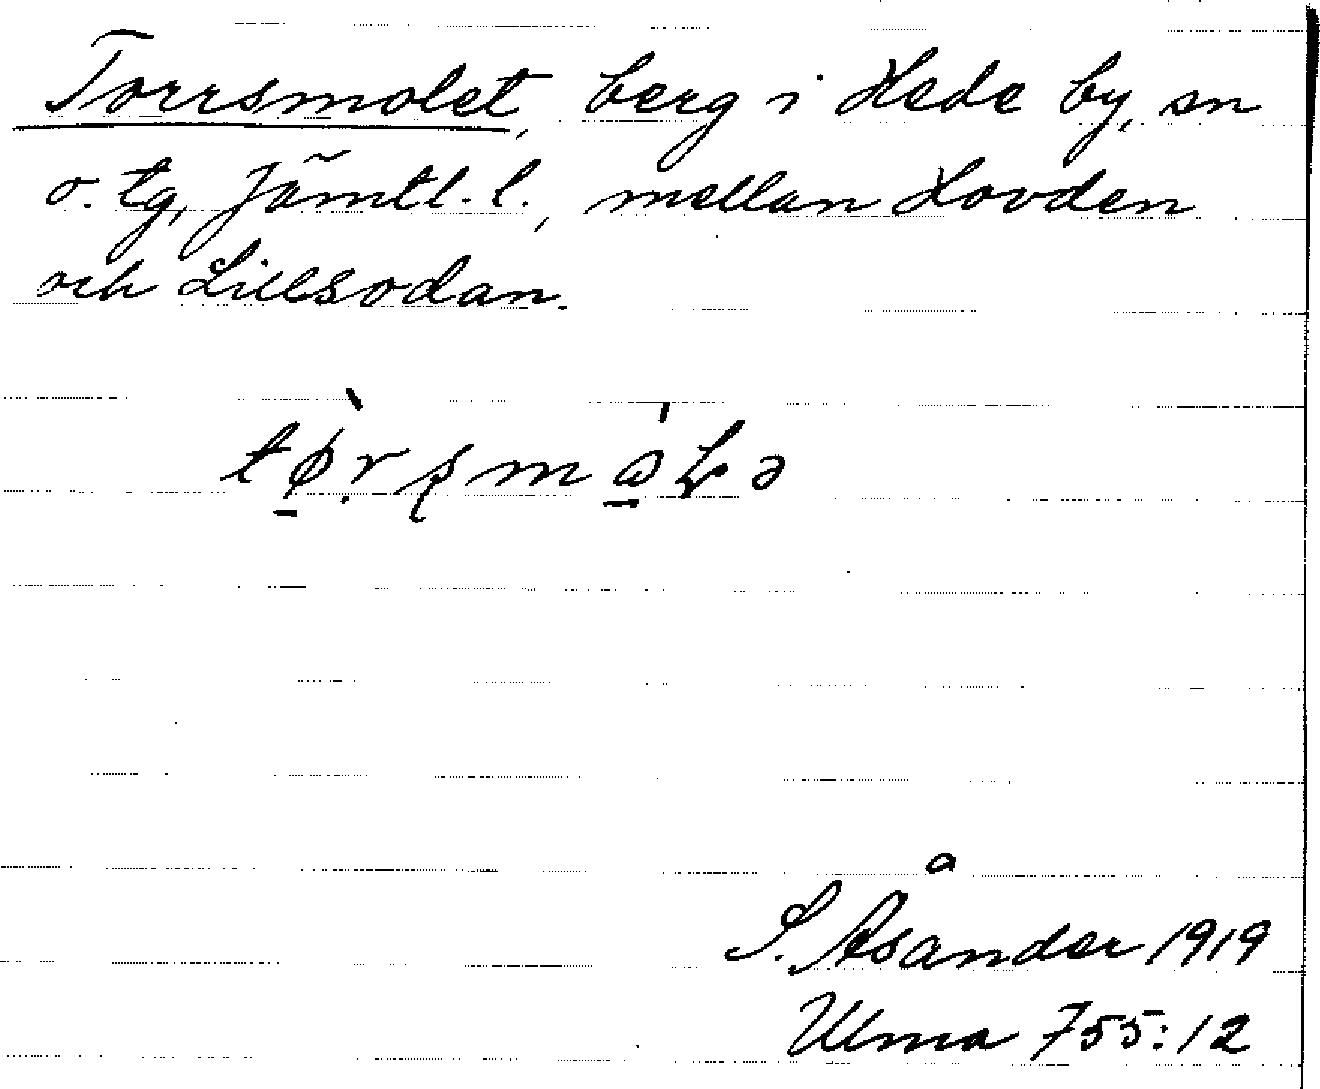 Torrsmolet, berg i Hede by, sn
o. tg, Jämtl. l., mellan Hovden
och Lillsodan.
S. Åsander 1919
Ulma 755:12